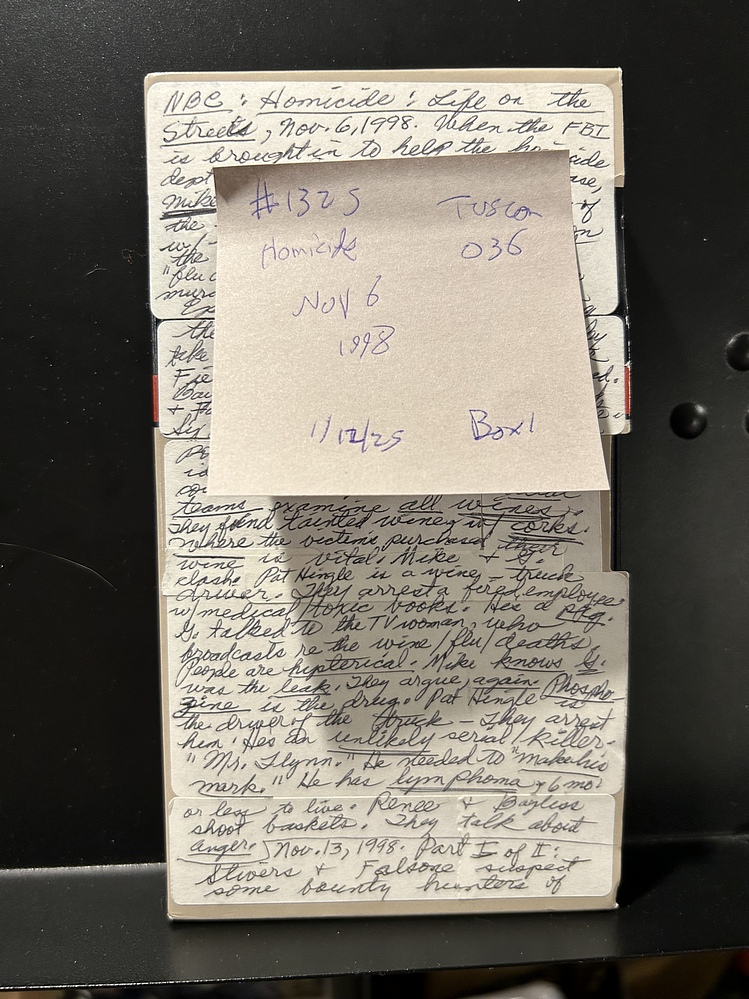 NBC: Homicide: Life on the
Streets, Nov. 6, 1998. When the FBI
is brought in to help the homicide
dept
Mike of
the on
w/
the
"flu
mur
#1325 Tuscon
Homicide 036
Nov 6
1998
1/12/25 Box 1
the
take
Fie
Bay
+ Fa
teams examine all wines.
They find tainted wines w/ corks.
Where the victims purchased their
wine is vital. Mike + G.
clash. Pat Hingle is a wine-truck
driver. They arrest a fired employee
w/ medical toxic books. He's a
G. talked to the TV woman, who
broadcasts re the wine/flu/deaths.
People are hysterical. Mike knows G.
was the leak. They argue again. Phospho-
zine is the drug. Pat Hingle is
the driver of the truck - They arrest
him. He's an unlikely serial killer.
"Mr. Flynn." He needed to "make his
mark." He has lymphoma, 6 mo.
or less to live. Renee + Bayliss
shoot baskets. They talk about
anger. Nov. 13, 1998. Part I of II:
Stivers + Falsone suspect
some bounty hunters of